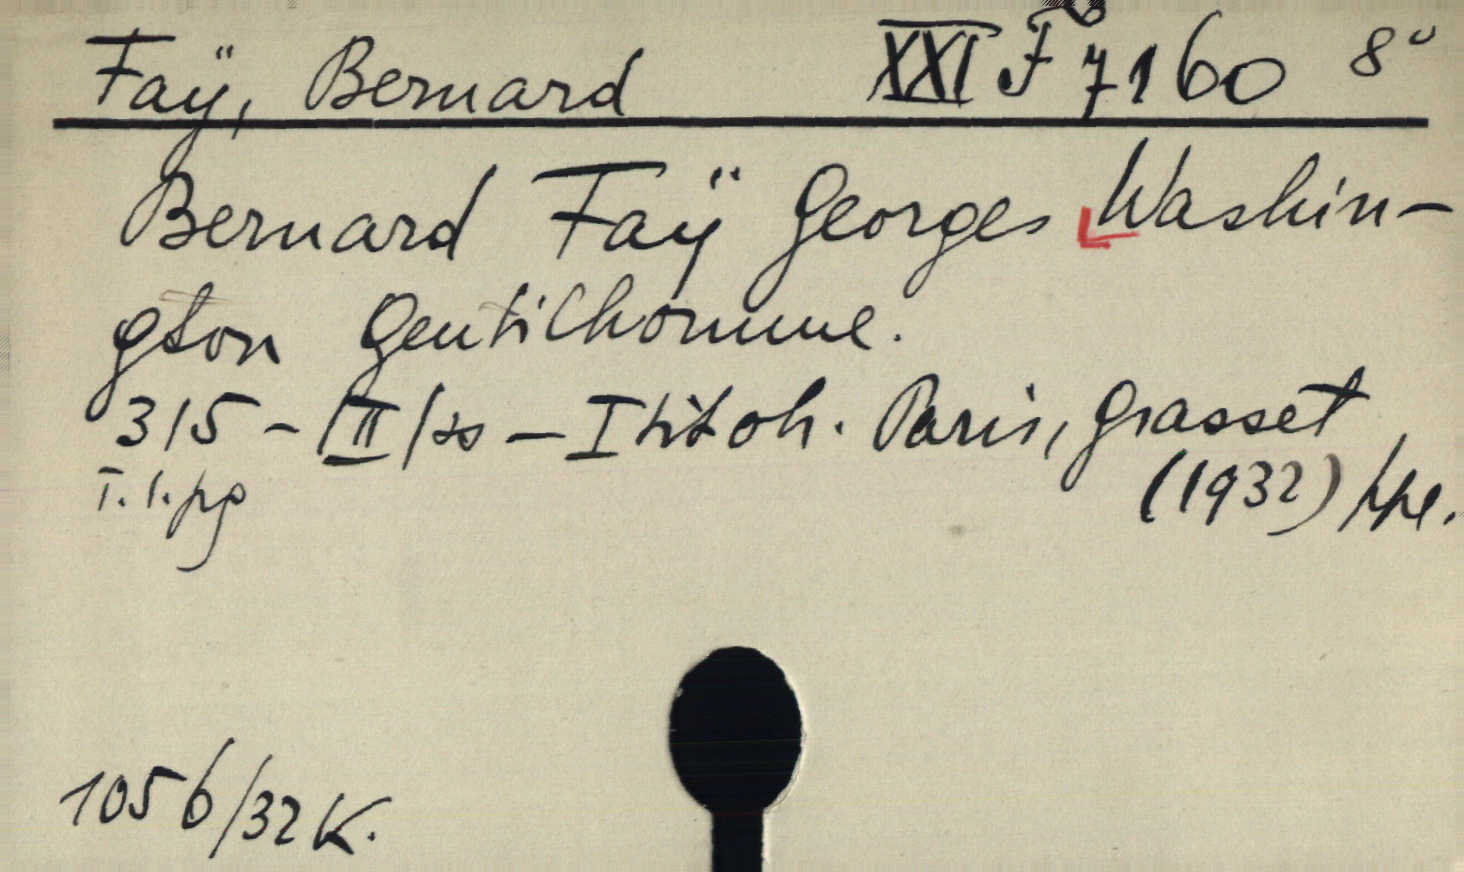 Faÿ, Bernard XXI F 7160 8°
Bernard Faÿ Georges Washin-
gton gentilhomme.
315 - /II/ ss - I tit oh. Paris, Grasset
(1932)
1056/32 K.